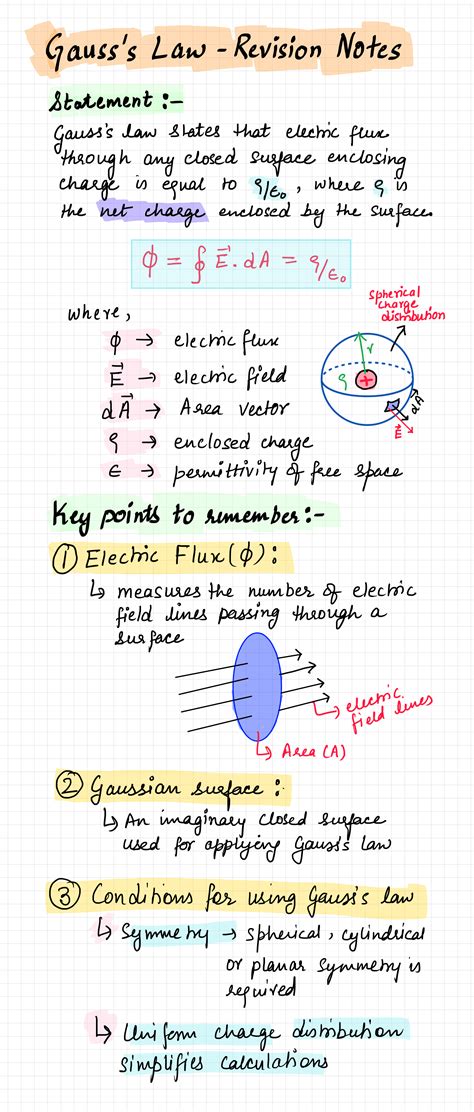 Gauss's Law - Revision Notes
Statement :-
Gauss's law states that electric flux
through any closed surface enclosing
charge is equal to q/ε₀, where q is
the net charge enclosed by the surface.
ϕ = ∮ E⃗. dA = q/ε₀
where,
spherical
charge
distribution
ϕ → electric flux
E⃗ → electric field
dA⃗ → Area vector
q → enclosed charge
ε → permittivity of free space
r
q
+
dA⃗
E⃗
Key points to remember:-
① Electric Flux (ϕ) :
↳ measures the number of electric
field lines passing through a
surface
↳ electric
field lines
↳ Area (A)
② Gaussian surface :
↳ An imaginary closed surface
used for applying Gauss's law
③ Conditions for using Gauss's law
↳ Symmetry → spherical, cylindrical
or planar symmetry is
required
↳ Uniform charge distribution
simplifies calculations